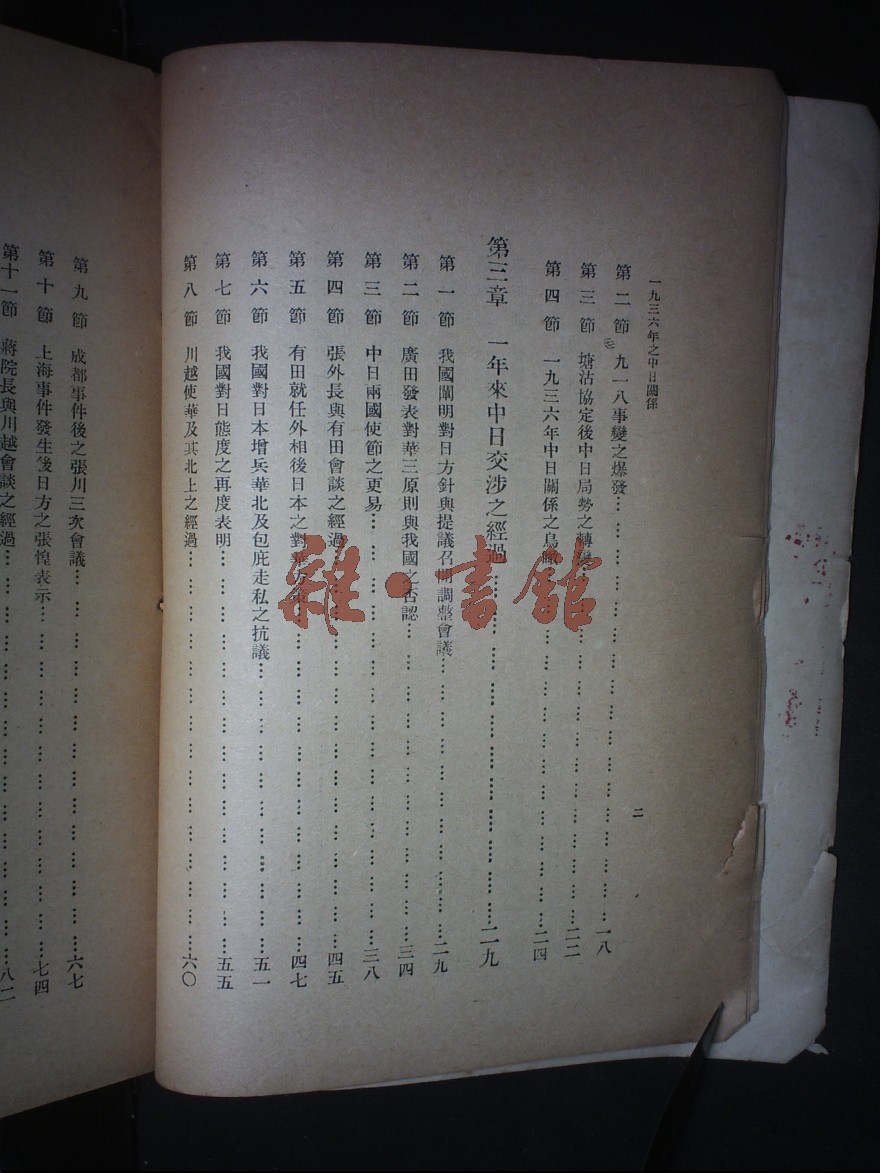 一九三六年之中日關係
二
第二節 九一八事變之爆發……一八
第三節 塘沽協定後中日局勢之轉變……二二
第四節 一九三六年中日關係之鳥瞰……二四
第三章 一年來中日交涉之經過……二九
第一節 我國闡明對日方針與提議召開調整會議……二九
第二節 廣田發表對華三原則與我國之否認……三四
第三節 中日兩國使節之更易……三八
第四節 張外長與有田會談之經過……四五
第五節 有田就任外相後日本之對華方策……四七
第六節 我國對日本增兵華北及包庇走私之抗議……五一
第七節 我國對日態度之再度表明……五五
第八節 川越使華及其北上之經過……六〇
第九節 成都事件後之張川三次會議……六七
第十節 上海事件發生後日方之張惶表示……七四
第十一節 蔣院長與川越會談之經過……八二
雜·書館